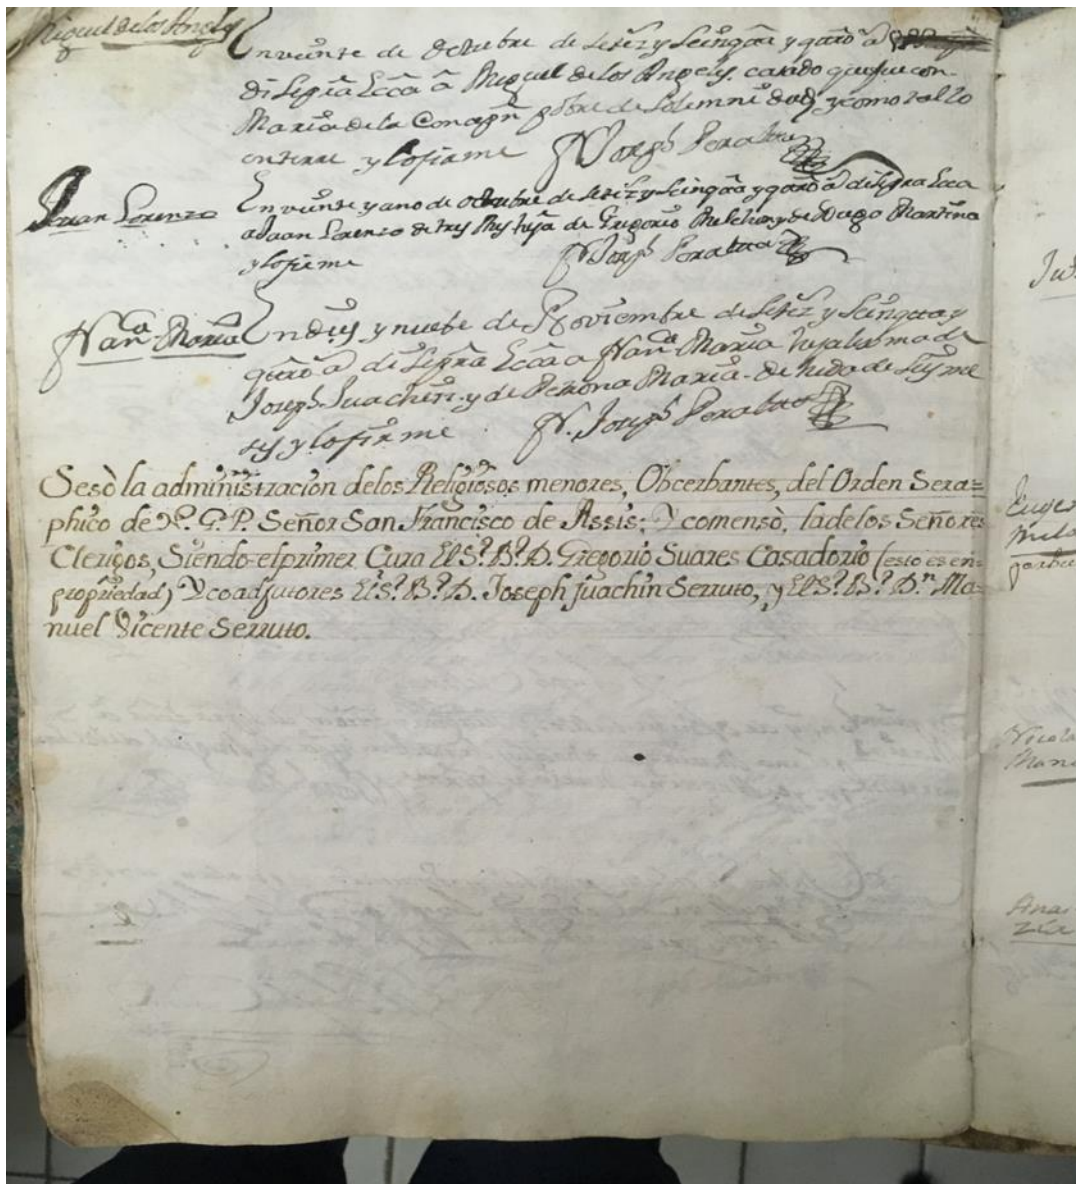 Miguel de los Angeles
En veinte de Octubre de setez y Seinqta y qatro a
di Sepra Ecca â Miguel de los Angeles. casado que fue con
Maria de la Concepn pobre de Solemnidad, y como tal lo
enterre y lo firme Fr Joseph Peralta
Juan Lorenzo
En veinte y uno de octubre de setez y Seinqta y qatro a di Sepra Ecca
a Juan Lorenzo de tres Mes hijo de Gregorio Melchior y de Martina
y lo firme Fr Joseph Peralta
Franca Maria
En dies y nuebe de Noviembre de setez y Seinqta y
qatro a di Sepra Ecca a Franca Maria hija lexma de
Joseph Juachin. y de Petrona Maria. de heda de seis me
ses y lo firme Fr. Joseph Peralta
Sesò la administracion delos Religiosos menores, Obcerbantes, del Orden Sera=
phico de N. G. P. Señor San Francisco de Assis; Y comensò, ladelos Señores
Clerigos, Siendo el primer Cura El Sr. Br. D. Gregorio Suares Casadorio (esto es en
propriedad) Y coadjutores El Sr. Br. D. Joseph Juachin Serruto, y El Sr. Br. Dn. Ma=
nuel Vicente Serruto.
Nicola